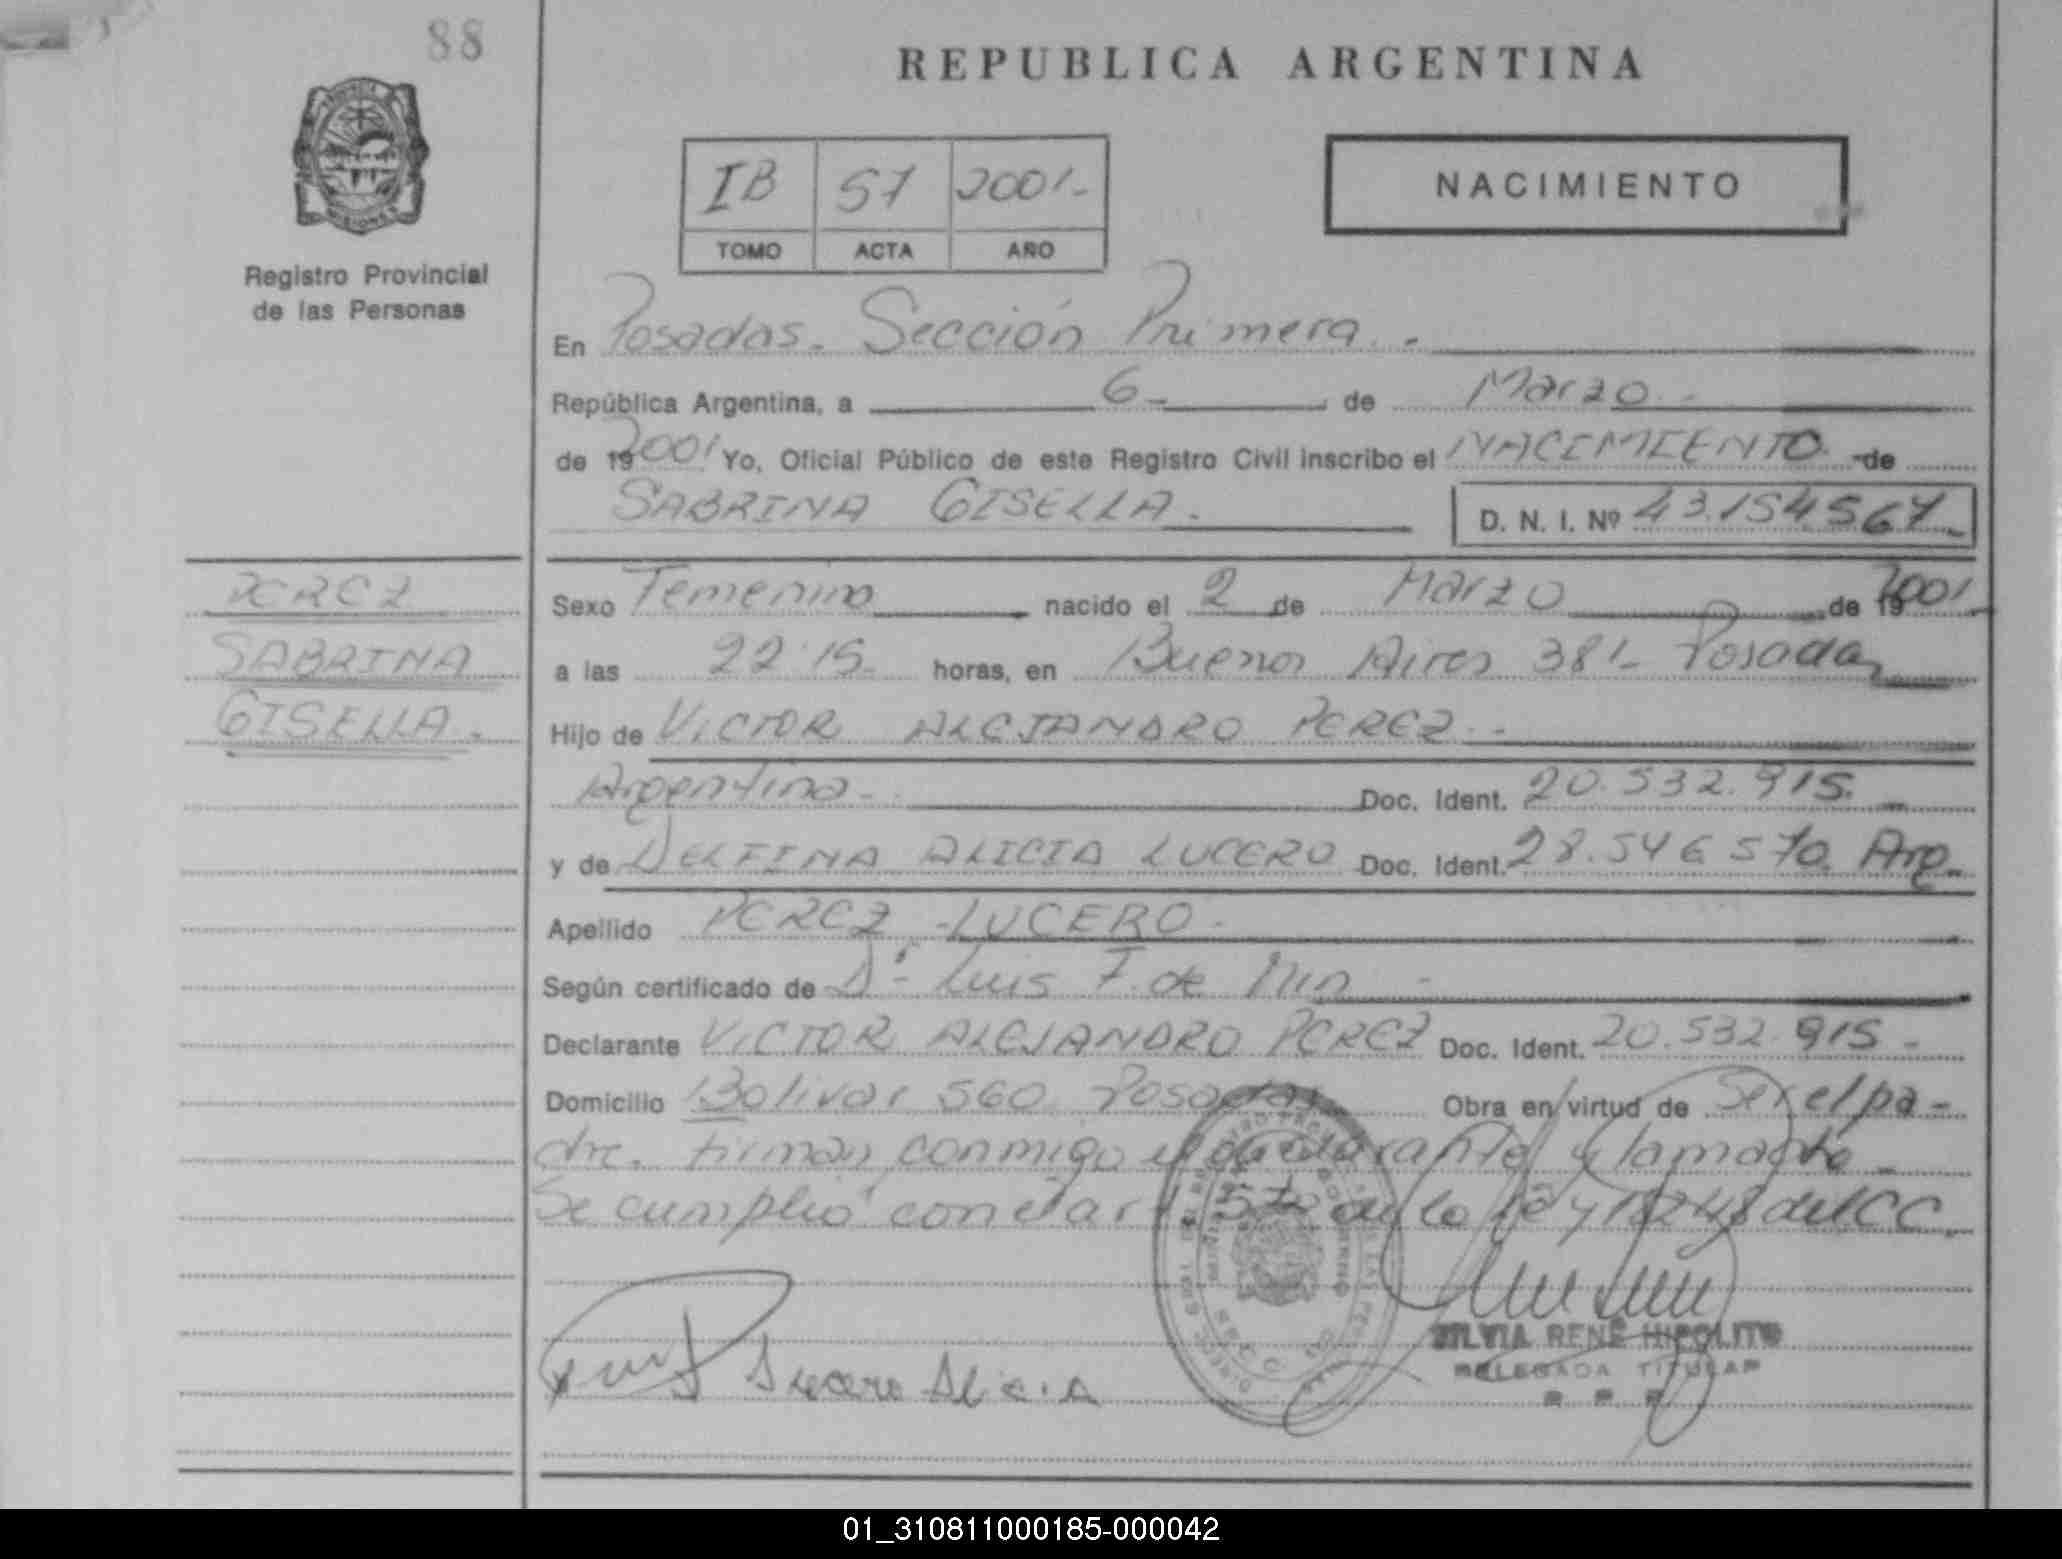 88
REPUBLICA ARGENTINA
IB 57 2001-
TOMO ACTA AÑO
NACIMIENTO
Registro Provincial
de las Personas
En Posadas. Sección Primera.
República Argentina, a 6 de Marzo
de 192001 Yo, Oficial Público de este Registro Civil inscribo el NACIMIENTO de
SABRINA GISELLA. D. N. I. Nº 43.154.567
PEREZ
SABRINA
GISELLA.
Sexo Femenino nacido el 2 de Marzo de 192001
a las 22:15 horas, en Buenos Aires 381- Posadas
Hijo de VICTOR ALEJANDRO PEREZ
Argentino Doc. Ident. 20.532.915.
y de DELFINA ALICIA LUCERO Doc. Ident. 28.546.570. Arg.
Apellido PEREZ - LUCERO -
Según certificado de Dr. Luis F. de
Declarante VICTOR ALEJANDRO PEREZ Doc. Ident. 20.532.915 -
Domicilio Bolivar 560 Posadas Obra en virtud de Ser el pa-
dre. firman conmigo el declarante y la madre -
Se cumplió con el art de la ley 18248 del CC
Lucero Alicia
SILVIA RENÉ HIPOLITO
DELEGADA TITULAR
R P P
01_310811000185-000042